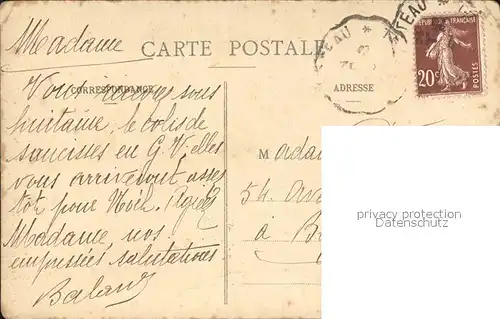 Madame
CARTE POSTALE
CORRESPONDANCE
ADRESSE
RÉPUBLIQUE FRANÇAISE
20c
POSTES
TEAU
TEAU
Vous recevrez sous
huitaine, le colis de
saucisses en G. V. elles
vous arriveront assez
tôt pour Noël. Agréez
Madame, nos
empressées salutations
Mada
54, Av
à B
privacy protection
Datenschutz